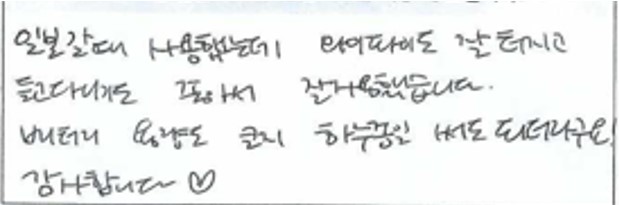 일본갈때 사용했는데 와이파이도 잘 터지고
들고다니기도 좋아서 잘사용했습니다.
배터리 용량도 큰지 하루종일 써도 되더라구요!
감사합니다 ♡